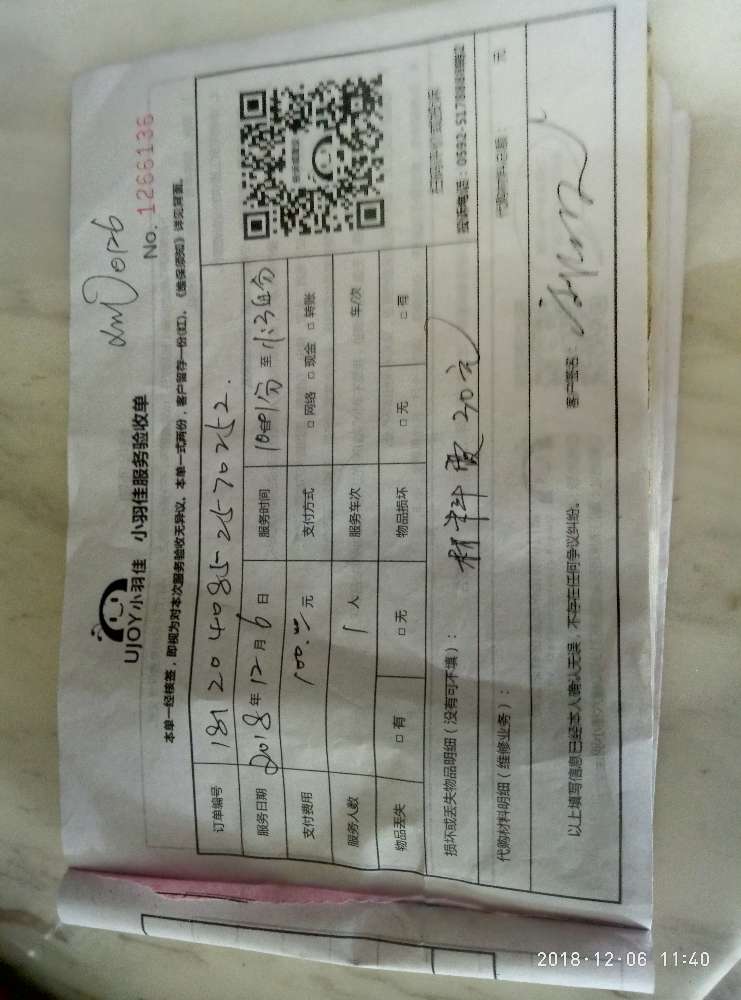 No. 1266136
UJOY小羽佳 小羽佳服务验收单
本单一经核签，即视为对本次服务验收无异议，本单一式两份，客户留存一份(红)，《维保须知》详见背面。
订单编号
服务日期 2018年12月6日 服务时间 至 分
支付费用 100.00元 支付方式 □网络 □现金 □转账
服务人数 1人 服务车次 车/次
物品丢失 □有 □无 物品损坏 □无 □有
投诉电话：0592-5178888
损坏或丢失物品明细（没有可不填）： 材料费30元
代购材料明细（维修业务）： 代购材料总额： 元
以上填写信息已经本人确认无误，不存在任何争议纠纷。 客户签名：
2018·12·06 11:40